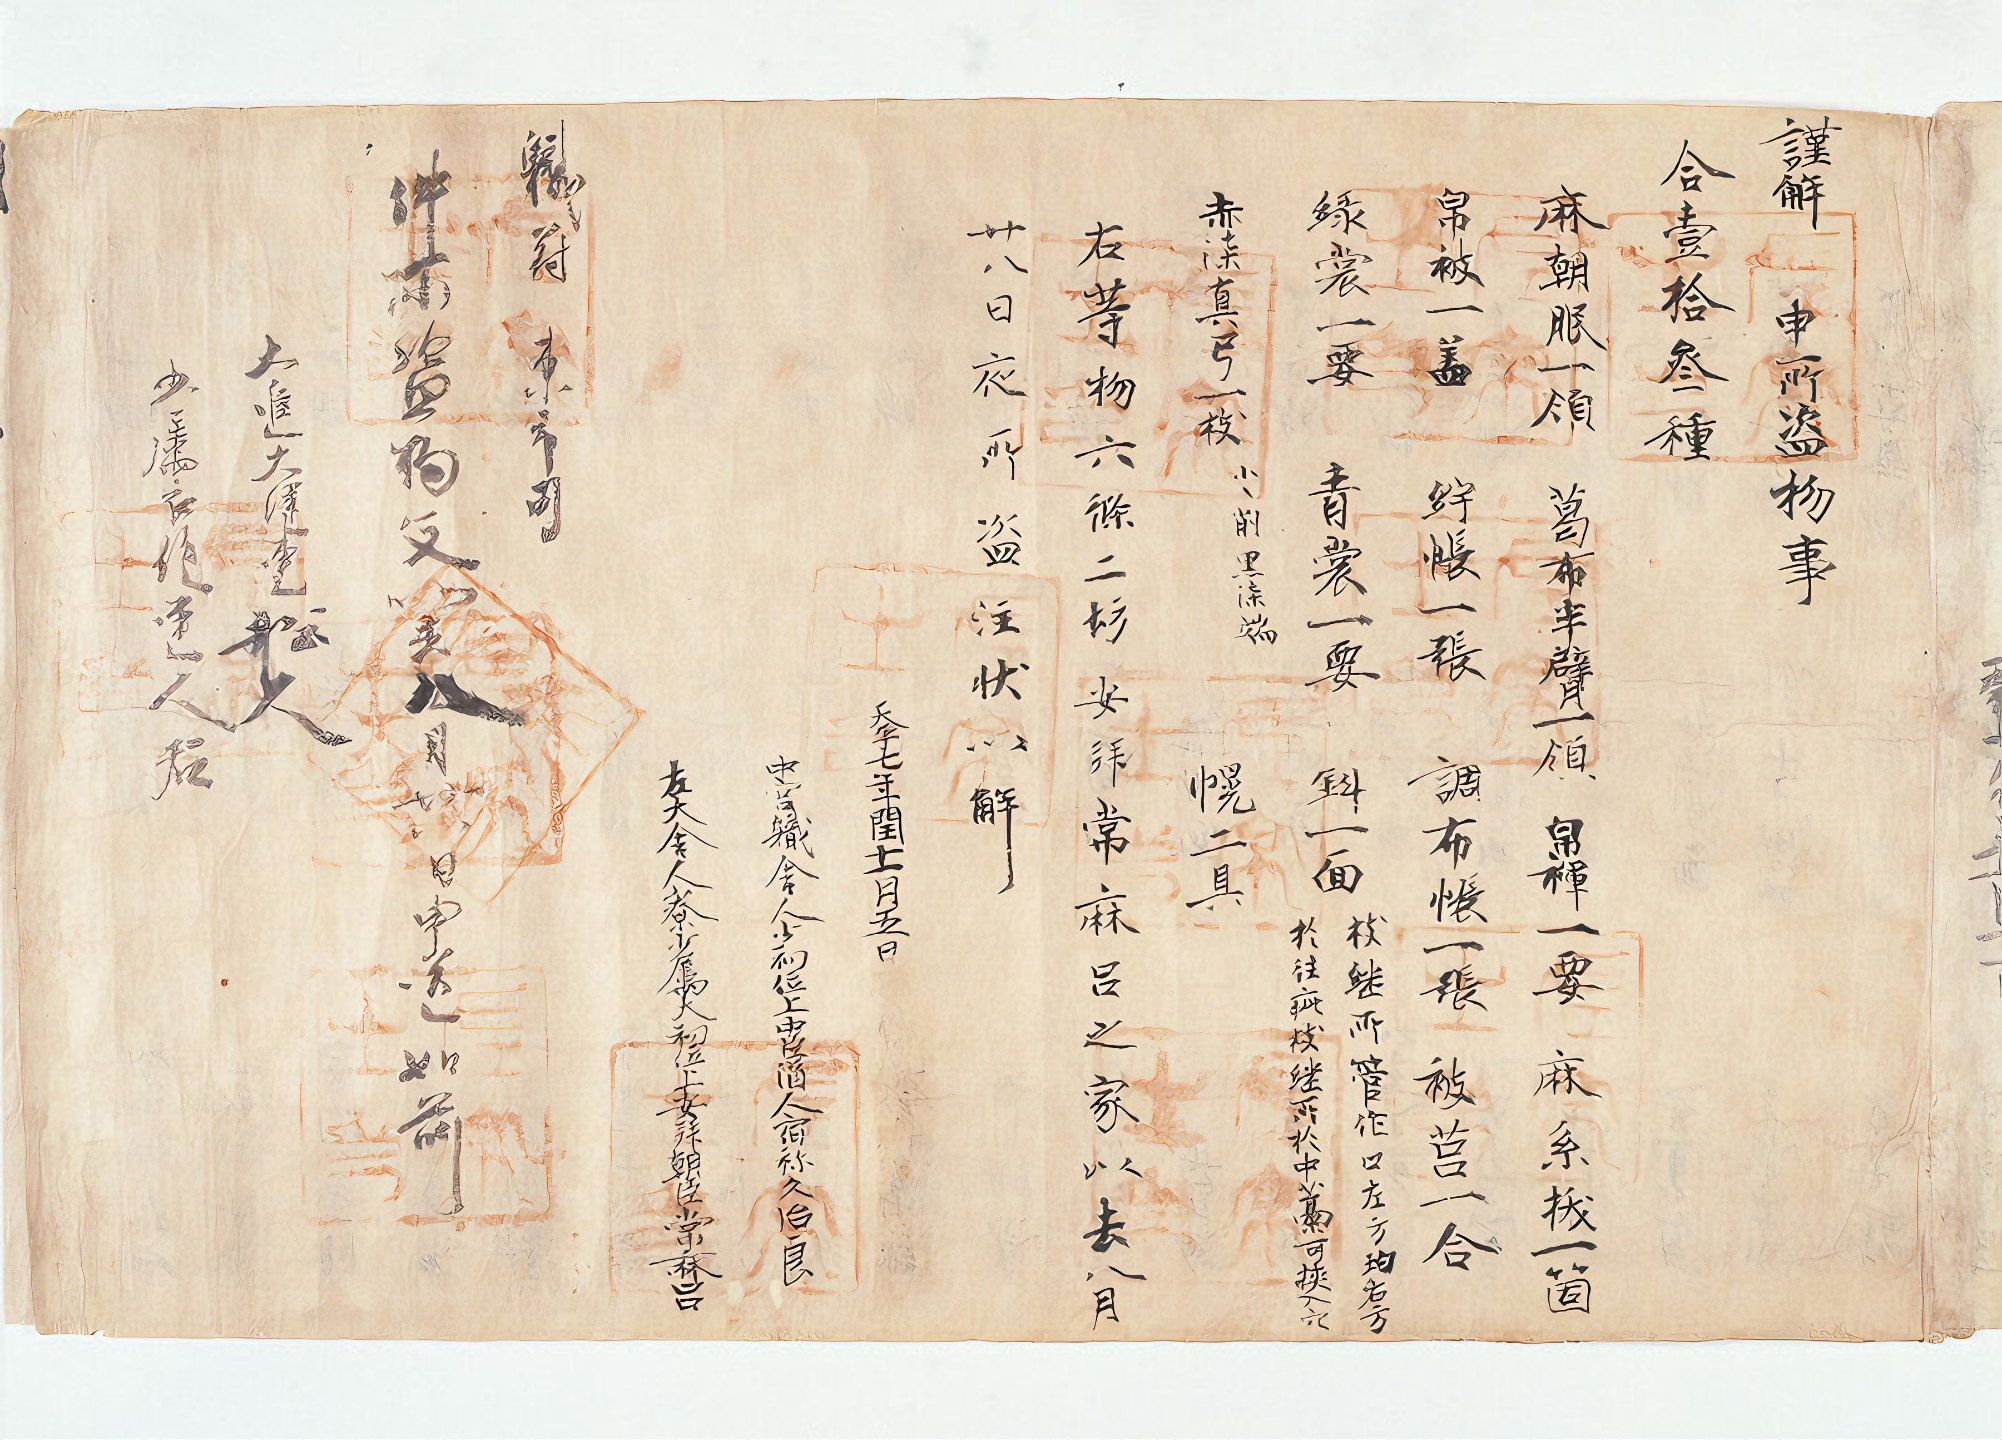 謹解　申所盗物事
合壹拾参種
麻朝服一領　葛布半臂一領　帛褌一要　麻糸抜一箇
帛被一蓋　紵帳一張　調布帳一張　被筥一合
緑裳一要　青裳一要　斜一面
枚継所管作口左方均右方
於往疵枚継所於中　可挟入穴
赤漆真弓一枝
小々削黒漆端
幌二具
右等物六條二坊安拝常麻呂之家以去八月
廿八日夜所盗注状以解
天平七年閏十一月五日
中宮職舎人少初位上中臣酒人宿祢久治良
左大舎人寮少属大初位上安拝朝臣常麻呂
職符　東市司
件　盗物　以　八月廿　日申送如前
大進大津連船人
少属　連人君